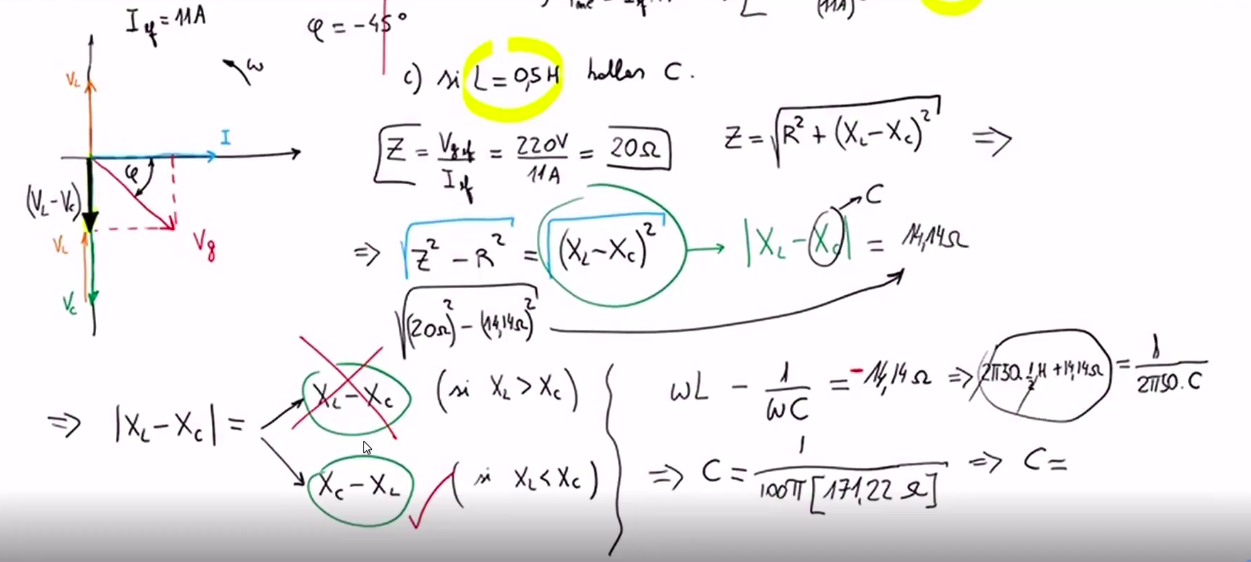 I_ef = 11A
φ = -45°
(11A)
V_L
ω
c) si L = 0,5H hallar C.
I
Z = V_gef / I_ef = 220V / 11A = 20Ω
Z = √(R² + (X_L - X_C)²) ⇒
φ
(V_L - V_C)
V_L
V_g
V_C
⇒ √(Z² - R²) = √((X_L - X_C)²) → |X_L - X_C| = 14,14Ω
C
√((20Ω)² - (14,14Ω)²)
⇒ |X_L - X_C| =
X_L - X_C (si X_L > X_C)
X_C - X_L (si X_L < X_C)
ωL - 1/ωC = -14,14Ω ⇒ 2π50.½H + 14,14Ω = 1/2π50.C
⇒ C = 1/100π[171,22Ω] ⇒ C =